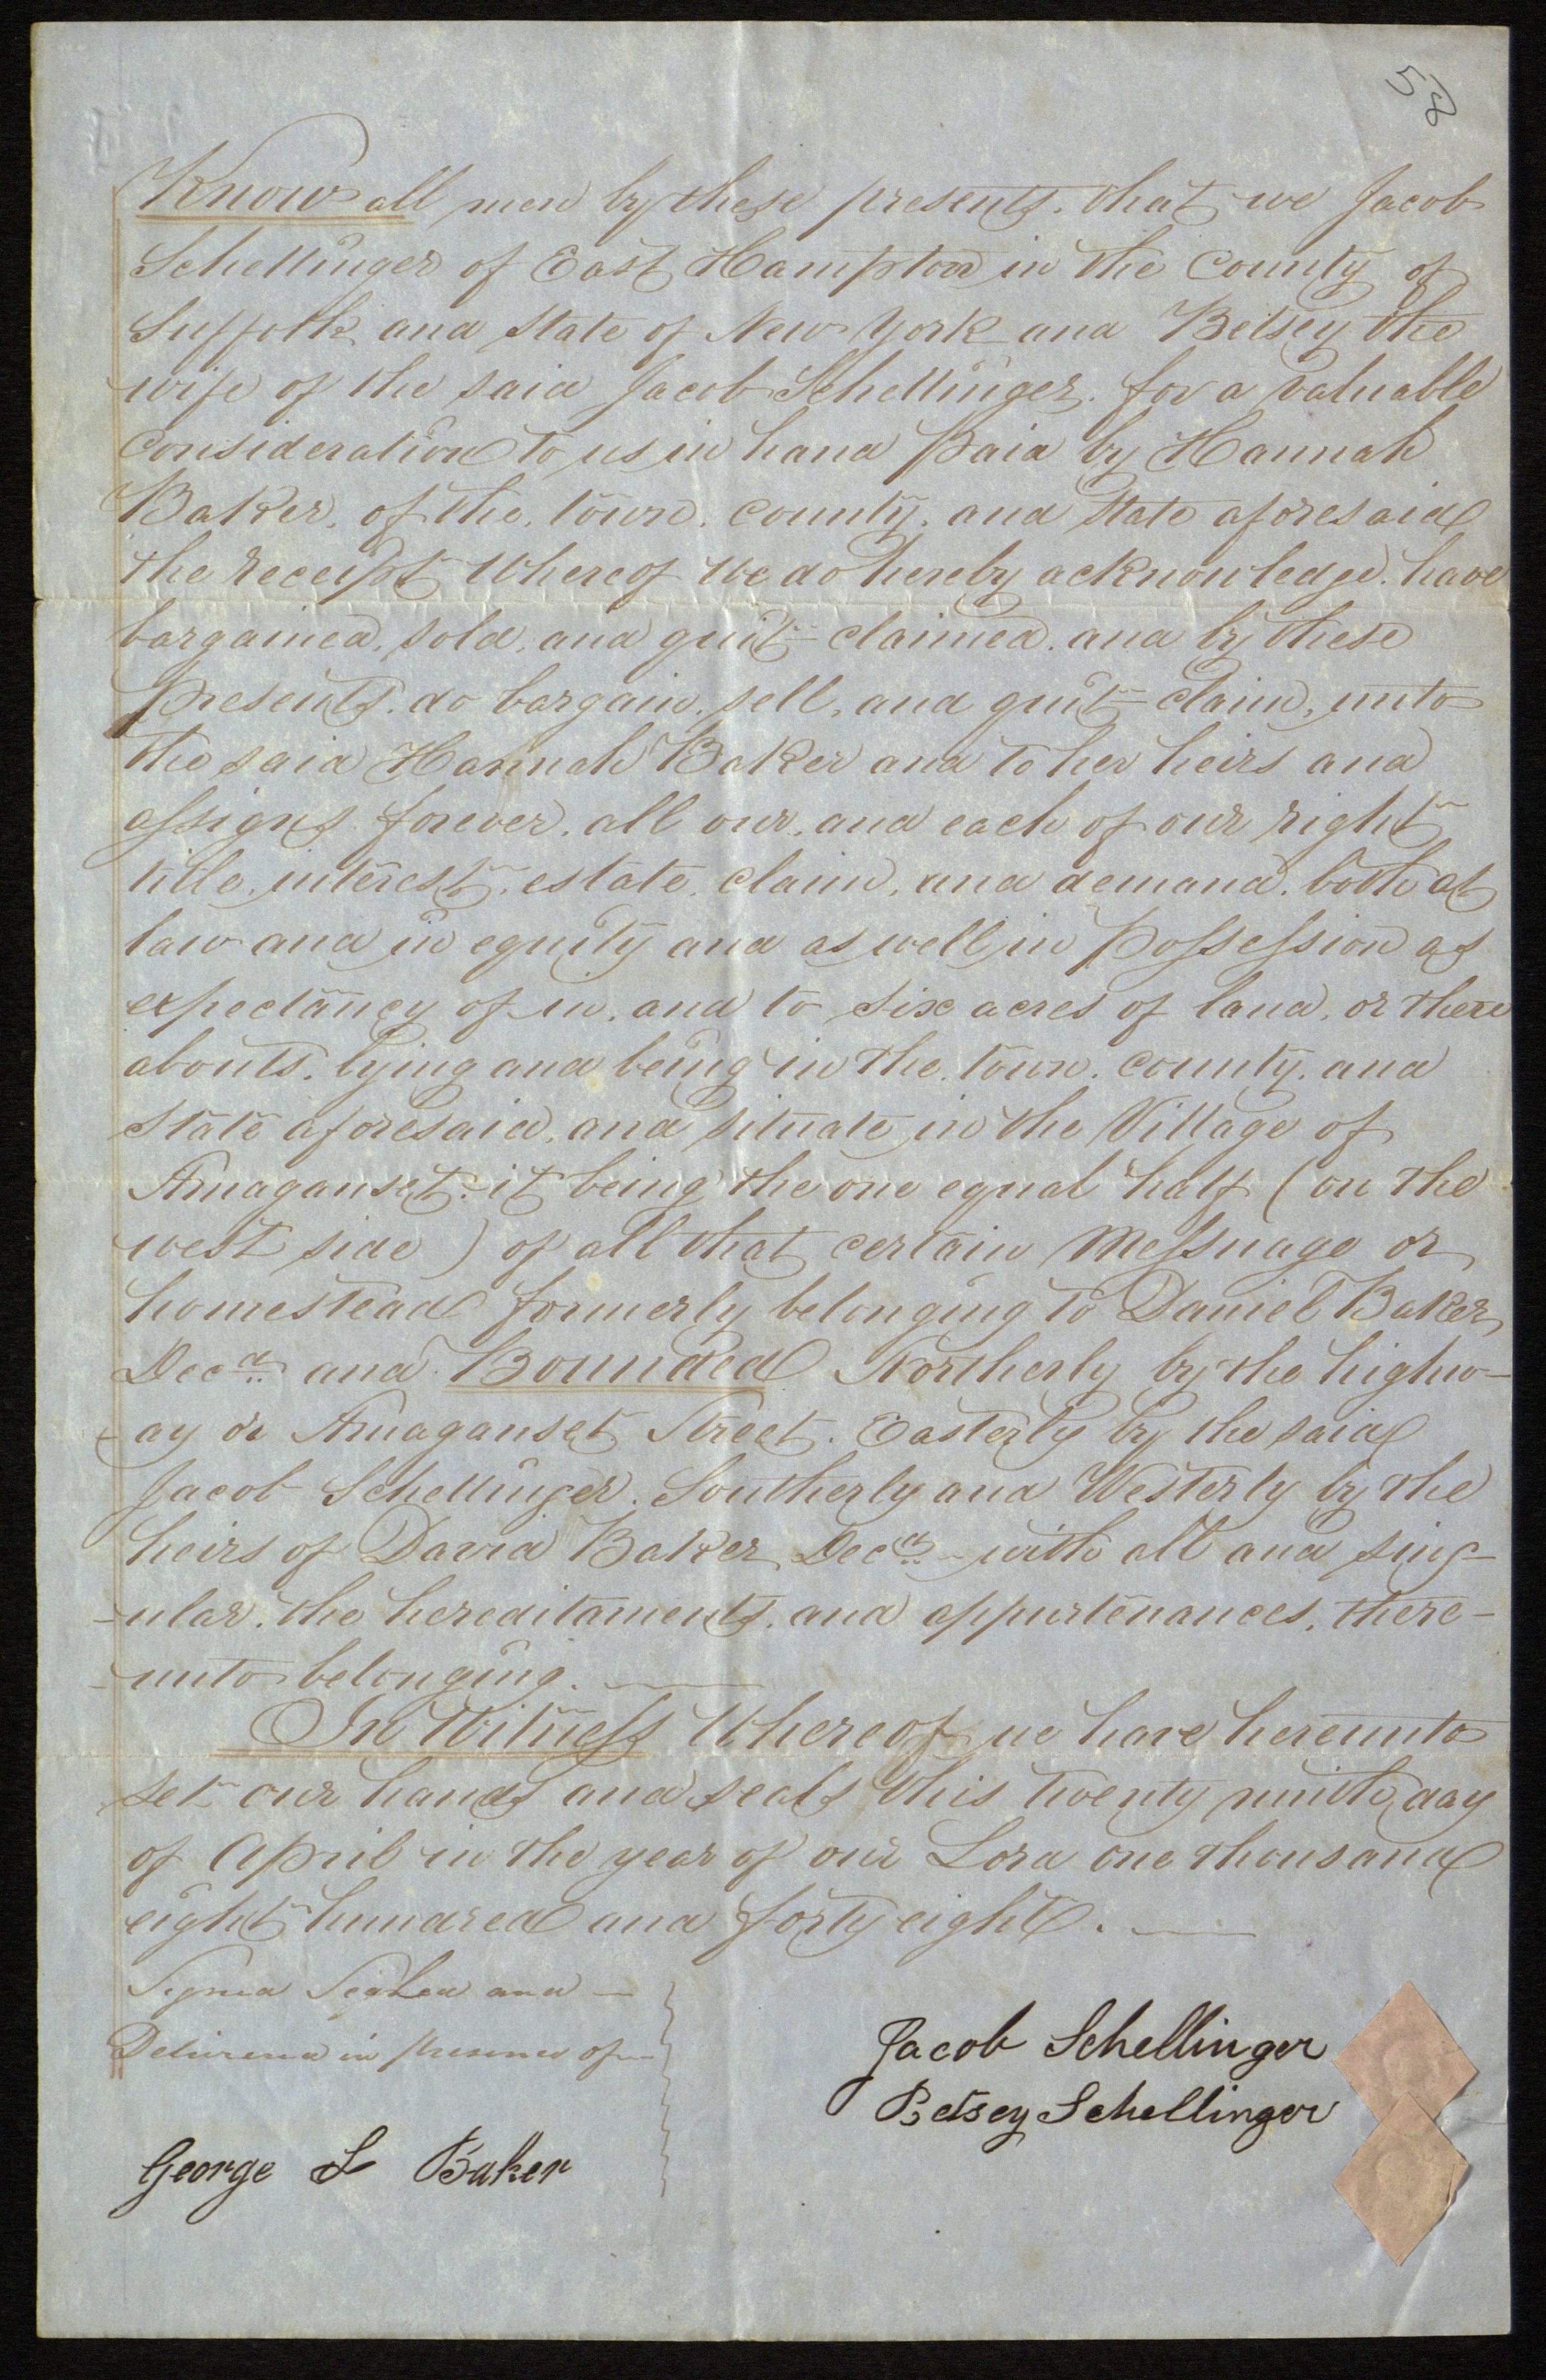 58
Know all men by these presents. that we Jacob
Schellinger of East Hampton in the County of
Suffolk and State of New York and Betsey the
wife of the said Jacob Schellinger. for a valuable
consideration to us in hand paid by Hannah
Baker, of the, town, county, and State aforesaid
the receipt whereof we do hereby acknowledge. have
bargained, sold, and quit-claimed. and by these
presents. do bargain. sell, and quit-claim, unto
the said Hannah Baker and to her heirs and
assigns forever. all our, and each of our right
title, interest, estate, claim, and demand. both at
law and in equity and as well in possession as
expectancy of in, and to six acres of land, or there
abouts. lying and being in the. town. county. and
State aforesaid, and situate in the Village of
Amaganset. it being the one equal half (on the
west side) of all that certain Messuage or
homestead formerly belonging to Daniel Baker
Decd. and Bounded Northerly by the highw-
-ay or Amaganset Street. Easterly by the said
Jacob Schellinger. Southerly and Westerly by the
heirs of David Baker Decd. - with all and sing-
-ular. the hereditaments. and appurtenances, there-
-unto belonging.
In Witness Whereof we have hereunto
set our hands and seals this twenty ninth day
of April in the year of our Lord one thousand
eight hundred and forty eight.
Signed Sealed and
Delivered in presence of
Jacob Schellinger
Betsey Schellinger
George L Baker